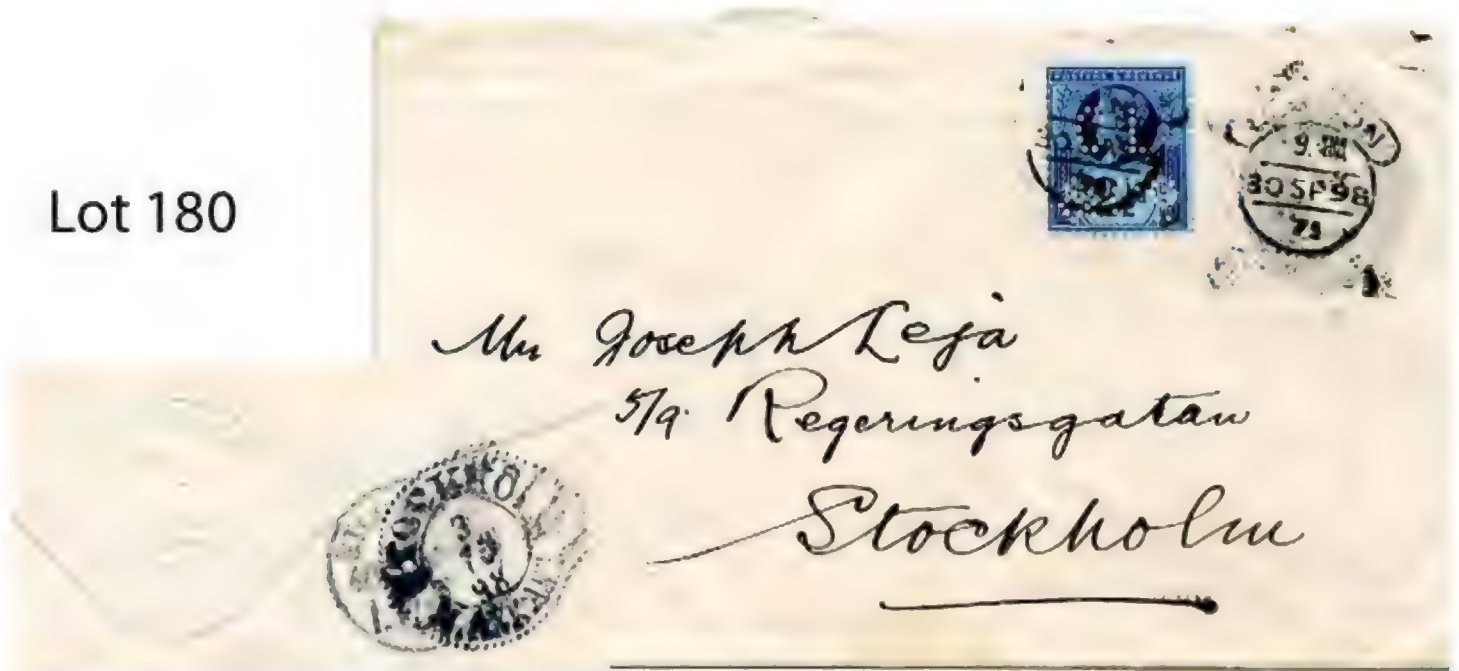 Lot 180
9.
30 SP 98
Mr Joseph Leja
5/9. Regeringsgatan
Stockholm
STOCKHOLM